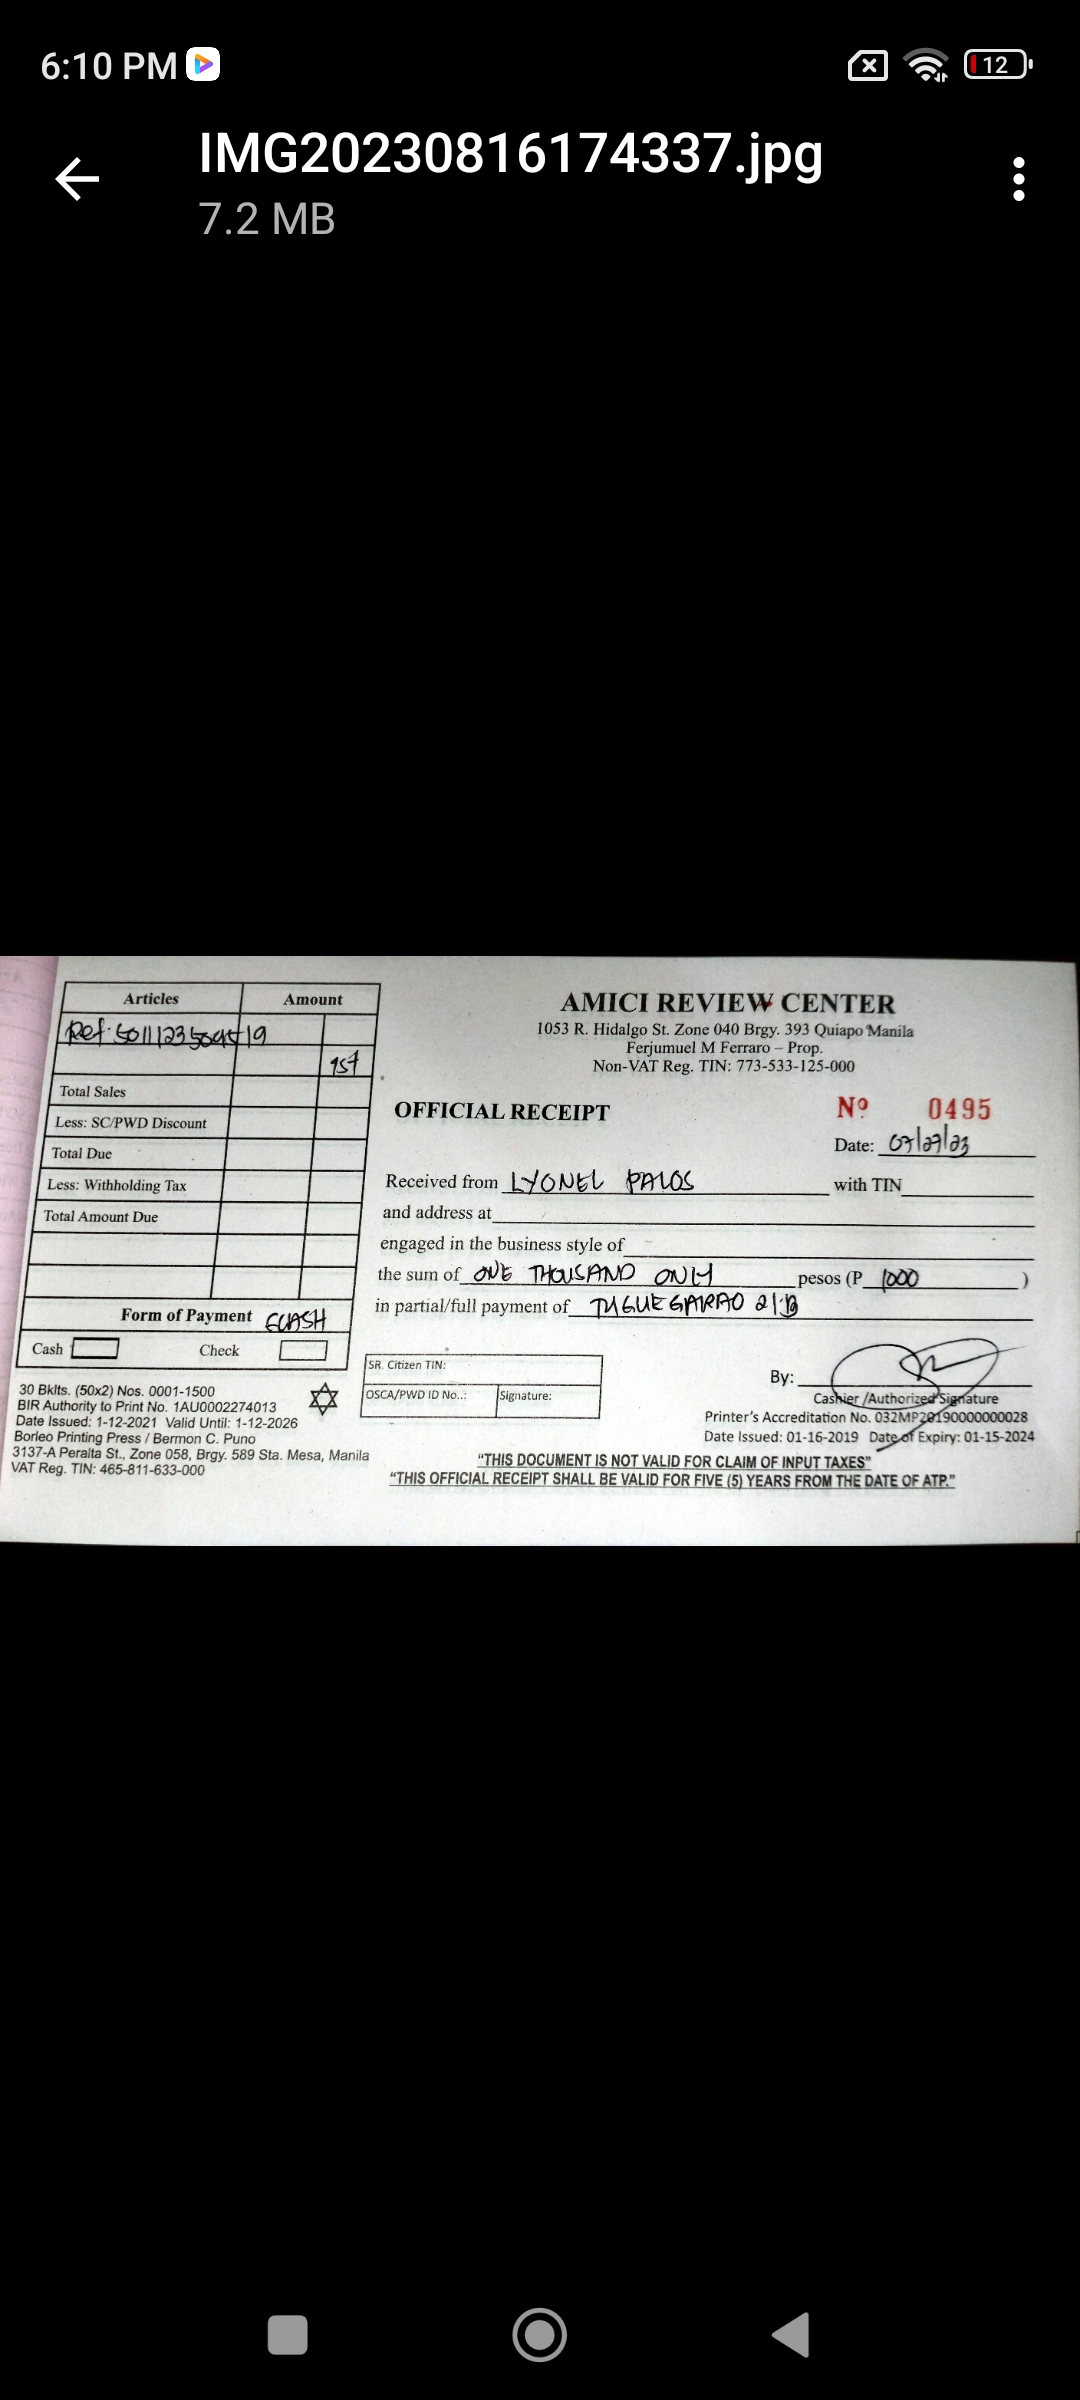 6:10 PM
12
IMG20230816174337.jpg
7.2 MB
Articles Amount
Ref: 
1st
Total Sales
Less: SC/PWD Discount
Total Due
Less: Withholding Tax
Total Amount Due
Form of Payment GCASH
Cash Check
30 Bklts. (50x2) Nos. 0001-1500
BIR Authority to Print No. 1AU0002274013
Date Issued: 1-12-2021 Valid Until: 1-12-2026
Borleo Printing Press / Bermon C. Puno
3137-A Peralta St., Zone 058, Brgy. 589 Sta. Mesa, Manila
VAT Reg. TIN: 465-811-633-000
AMICI REVIEW CENTER
1053 R. Hidalgo St. Zone 040 Brgy. 393 Quiapo Manila
Ferjumuel M Ferraro – Prop.
Non-VAT Reg. TIN: 773-533-125-000
OFFICIAL RECEIPT Nº 0495
Date: 07/27/23
Received from LYONEL PALOS with TIN
and address at
engaged in the business style of
the sum of ONE THOUSAND ONLY pesos (P 1000 )
in partial/full payment of TUGUEGARAO
SR. Citizen TIN:
OSCA/PWD ID No..: Signature:
By:
Cashier /Authorized Signature
Printer's Accreditation No. 032MP20190000000028
Date Issued: 01-16-2019 Date of Expiry: 01-15-2024
"THIS DOCUMENT IS NOT VALID FOR CLAIM OF INPUT TAXES"
"THIS OFFICIAL RECEIPT SHALL BE VALID FOR FIVE (5) YEARS FROM THE DATE OF ATP."